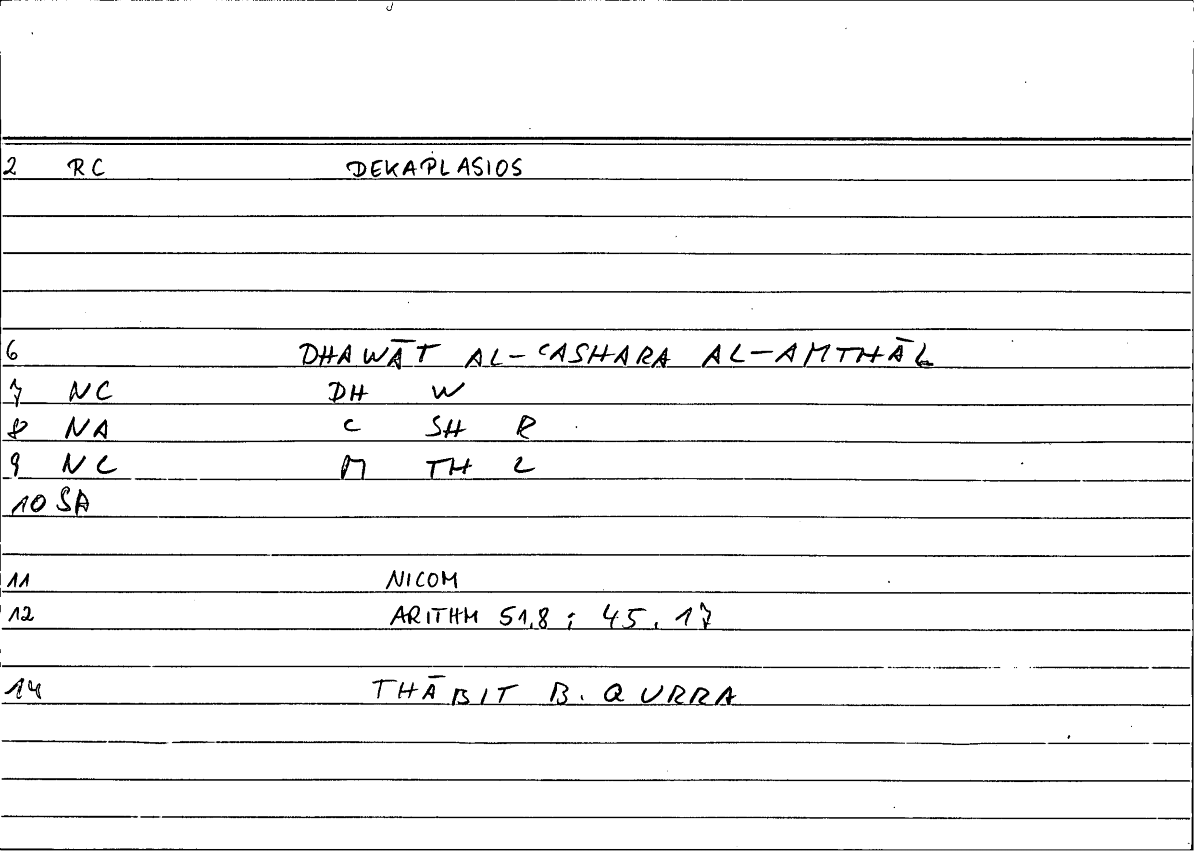 2 RC DEKAPLASIOS
6 DHAWĀT AL-ʿASHARA AL-AMTHĀL
7 NC DH W
8 NA C SH R
9 NC M TH L
10 SA
11 NICOM
12 ARITHM 51,8 ; 45.17
14 THĀBIT B. QURRA